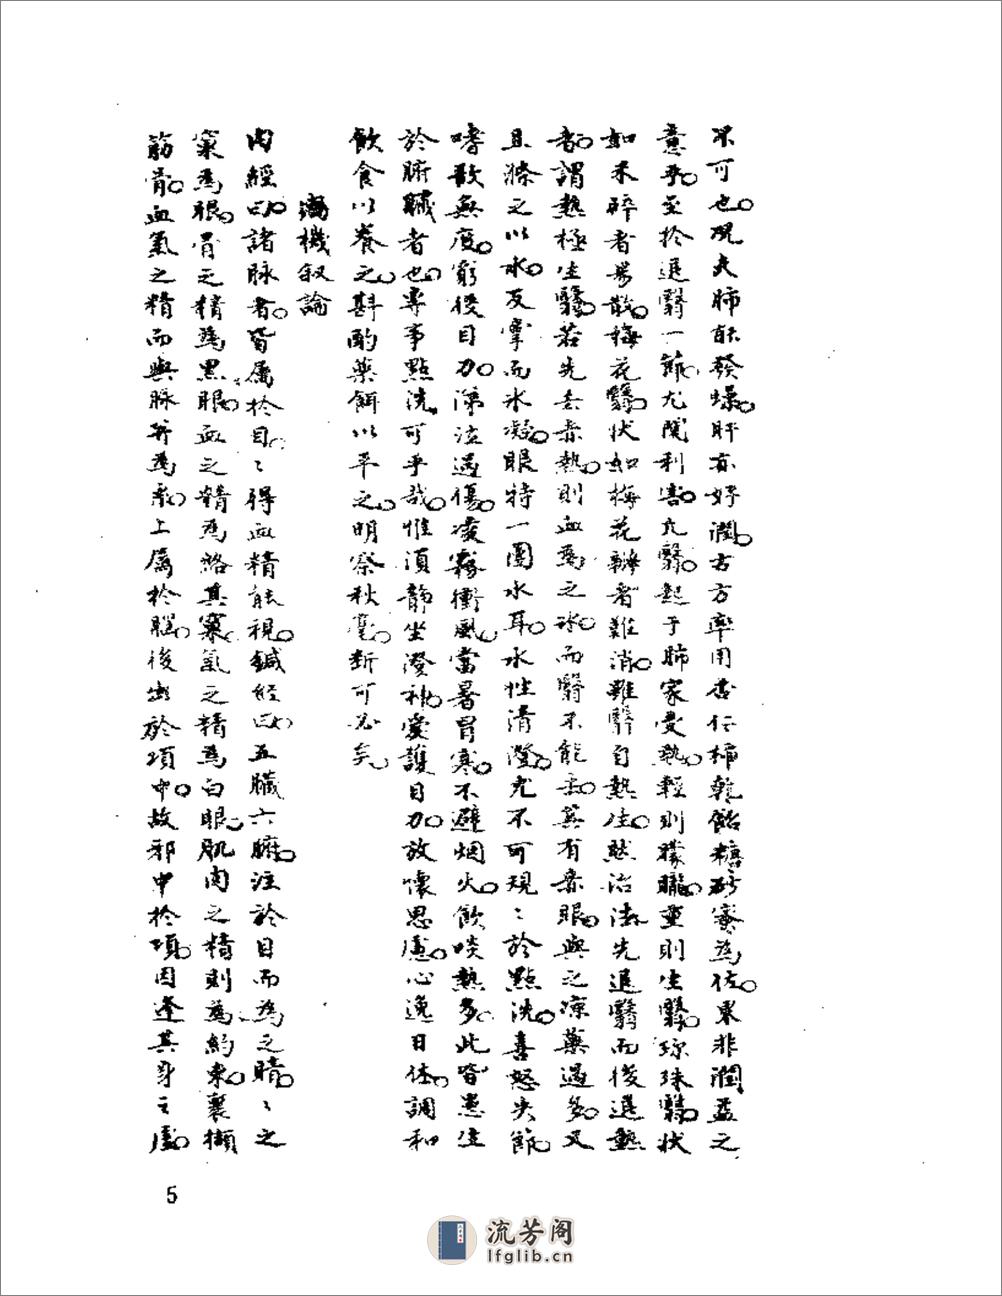 不可也況夫肺能發燥肝亦好潤古方率用杏仁柿乾飴糖砂蜜為佐東非潤益之
意乎至於退翳一節尤関利害凡翳起于肺家受熱輕則朦朧重則生翳珍珠翳狀
如米碎者易散梅花翳狀如梅花瓣者難消雖翳自熱生然治法先退翳而後退熱
者謂熱極生翳若先去赤熱則血為之冰而翳不能去其有赤眼與之涼藥過多又
且滌之以水反掌而冰凝眼特一團水耳水性清澄尤不可現〻於點洗喜怒失節
嗜欲無度窮役目力涕泣過傷凌霧衝風當暑冒寒不避烟火飲啖熱多此皆患生
於腑臟者也專事點洗可乎哉惟須靜坐澄神愛護目力放懷思慮心逸日休調和
飲食以養之斟酌藥餌以平之明察秋毫斷可必矣
機叙論
内經曰諸脉者皆属於目〻得血精能視鍼經曰五臟六腑注於目而為之睛〻之
窠為眼骨之精為黑眼血之精為絡其窠氣之精為白眼肌肉之精則為約束裹擷
筋骨血氣之精而與脉并為系上属於腦後出於項中故邪中於項因逢其身之虛
5
流芳阁
lfglib.cn